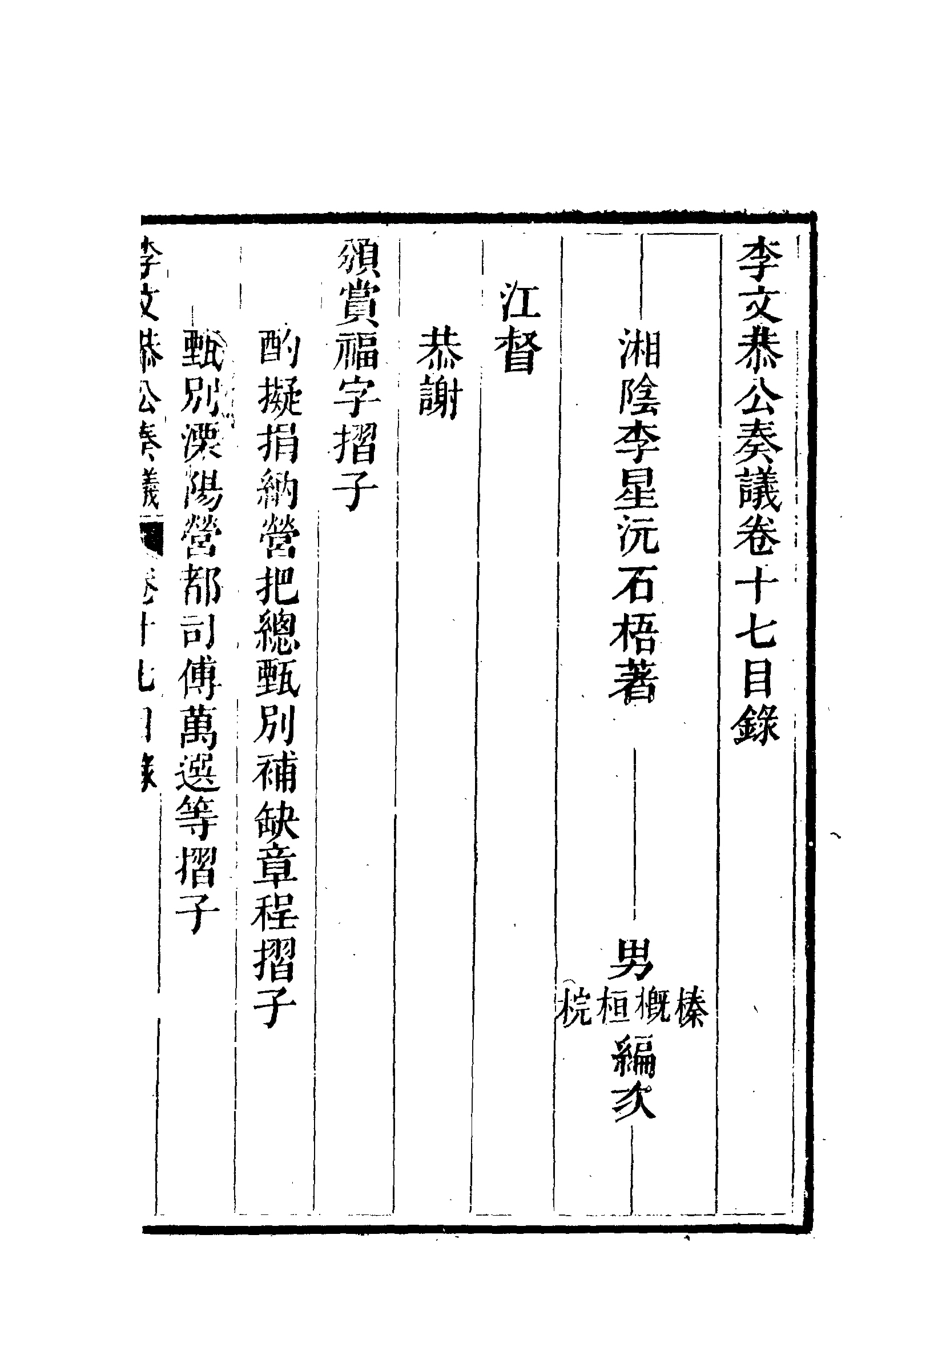 李文恭公奏議卷十七目錄
湘陰李星沅石梧著
男榛概桓梡編次
江督
恭謝
頒賞福字摺子
酌擬捐納營把總甄別補缺章程摺子
甄別溧陽營都司傅萬選等摺子
李文恭公奏議 卷十七目錄